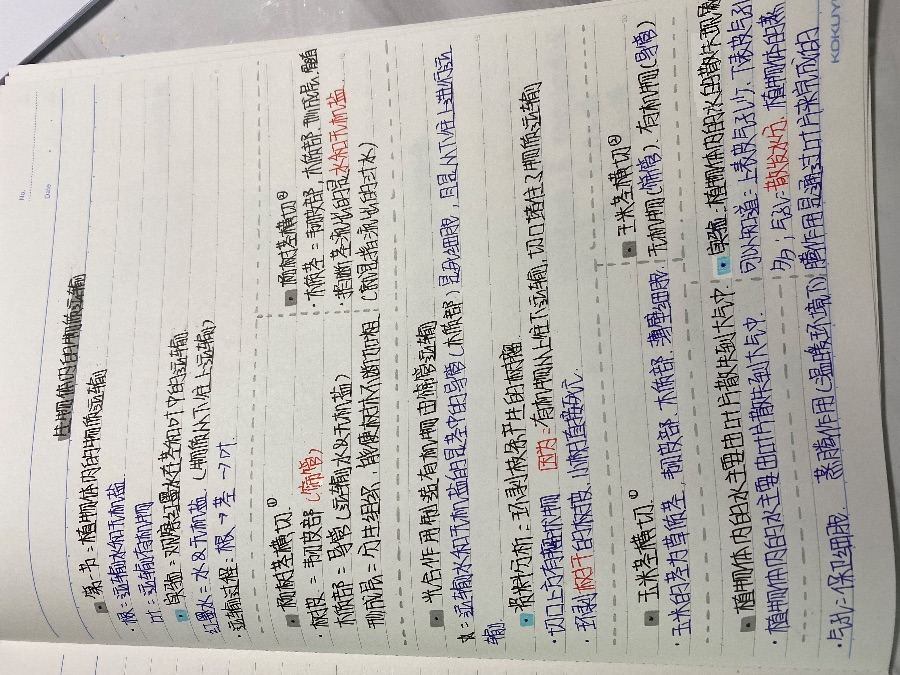 No.
Date
生物体内的物质运输
第一节：植物体内的物质运输
·根：运输水和无机盐
叶：运输有机物
实验：观察红墨水在茎和叶中的运输.
红墨水：水及无机盐.（物质从下往上运输）
·运输过程：根→茎→叶.
杨树茎横切①
·树皮：韧皮部（筛管）
木质部：导管（运输水及无机盐）
形成层：分生组织，能使树木不断加粗
杨树茎横切②
·木质茎：韧皮部.木质部.形成层.髓
掐断茎流出的是水和无机盐.
光合作用制造有机物由筛管运输
茎：运输水和无机盐的是茎中的导管（木质部）是死细胞，且是从下往上进行运
输.
资料分析：环割枝条产生的树瘤
·切口上方有有机物 因为：有机物从上往下运输，切口堵住了物质运输
·环割树干的树皮，小树直接死亡.
玉米茎横切.①
·玉米的茎为草质茎，韧皮部.木质部.薄壁细胞.
玉米茎横切②
无机物（筛管），有机物（导管）
植物体内的水主要由叶片散失到大气中
·植物体内的水主要由叶片散失到大气中.
·气孔：保卫细胞.
实验：植物体内的水的散失现象
可以知道：上表皮气孔少.下表皮气孔
多；气孔：散发水分.植物体的蒸
腾作用是通过叶片来完成的
蒸腾作用（温暖环境下）
KOKUYO